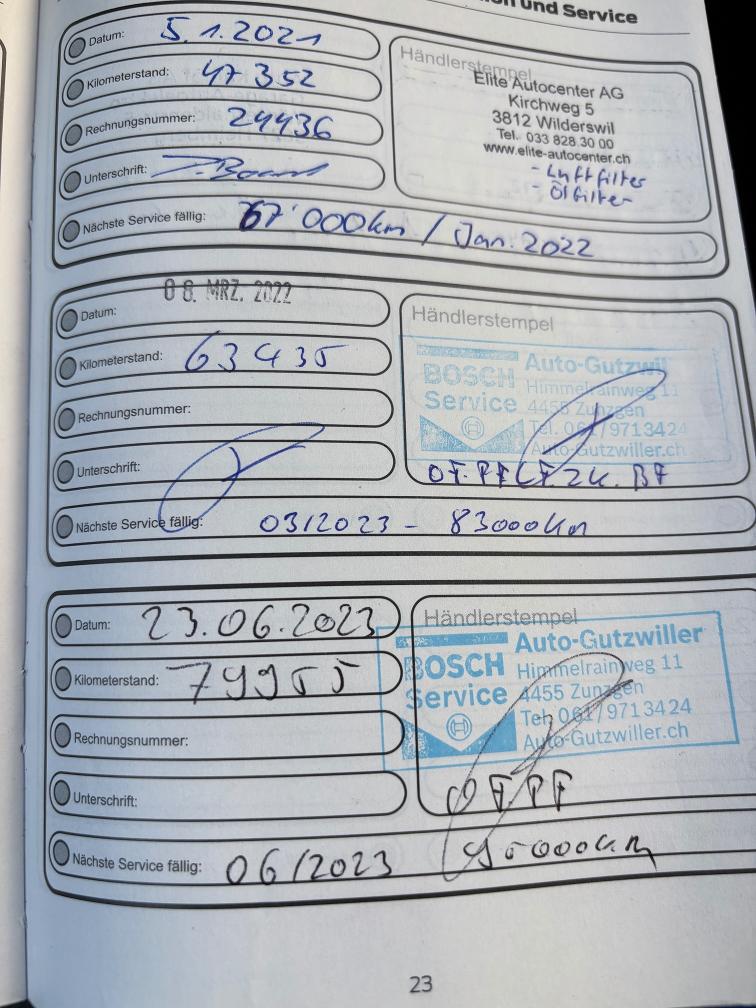 und Service
Datum: 5.1.2021
Kilometerstand: 47352
Rechnungsnummer: 24436
Unterschrift:
Nächste Service fällig: 67'000km / Jan. 2022
Händlerstempel
Elite Autocenter AG
Kirchweg 5
3812 Wilderswil
Tel. 033 828 30 00
www.elite-autocenter.ch
- Luftfilter
- Ölfilter
Datum: 08. MRZ. 2022
Kilometerstand: 63435
Rechnungsnummer:
Unterschrift:
Nächste Service fällig: 03/2023 - 83000km
Händlerstempel
BOSCH Service
Auto-Gutzwil
Himmelrainweg 11
4455 Zunzgen
Tel. 061/9713424
Auto-Gutzwiller.ch
OF. PF LF ZK. BF
Datum: 23.06.2023
Kilometerstand: 79955
Rechnungsnummer:
Unterschrift:
Nächste Service fällig: 06/2023
Händlerstempel
BOSCH Service
Auto-Gutzwiller
Himmelrainweg 11
4455 Zunzgen
Tel. 061/9713424
Auto-Gutzwiller.ch
OF PF
95000km
23